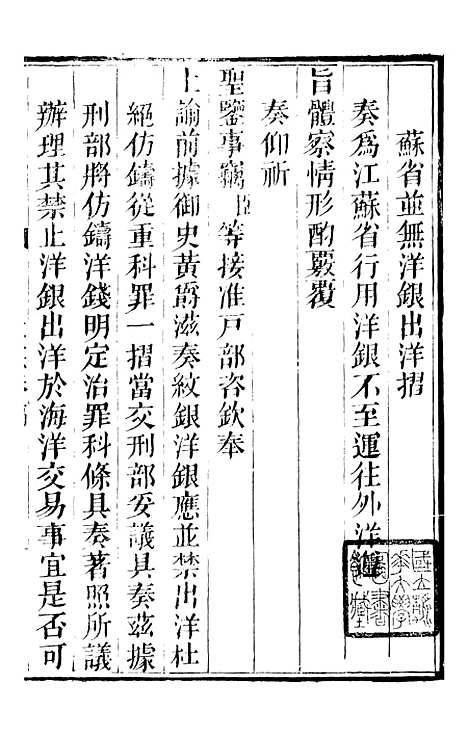 蘇省並無洋銀出洋摺
奏爲江蘇省行用洋銀不至運往外洋遵
旨體察情形酌覈覆
奏仰祈
聖鑒事竊臣等接准戶部咨欽奉
上諭前據御史黃爵滋奏紋銀洋銀應並禁出洋杜
絕仿鑄從重科罪一摺當交刑部妥議具奏茲據
刑部將仿鑄洋錢明定治罪科條具奏著照所議
辦理其禁止洋銀出洋於海洋交易事宜是否可